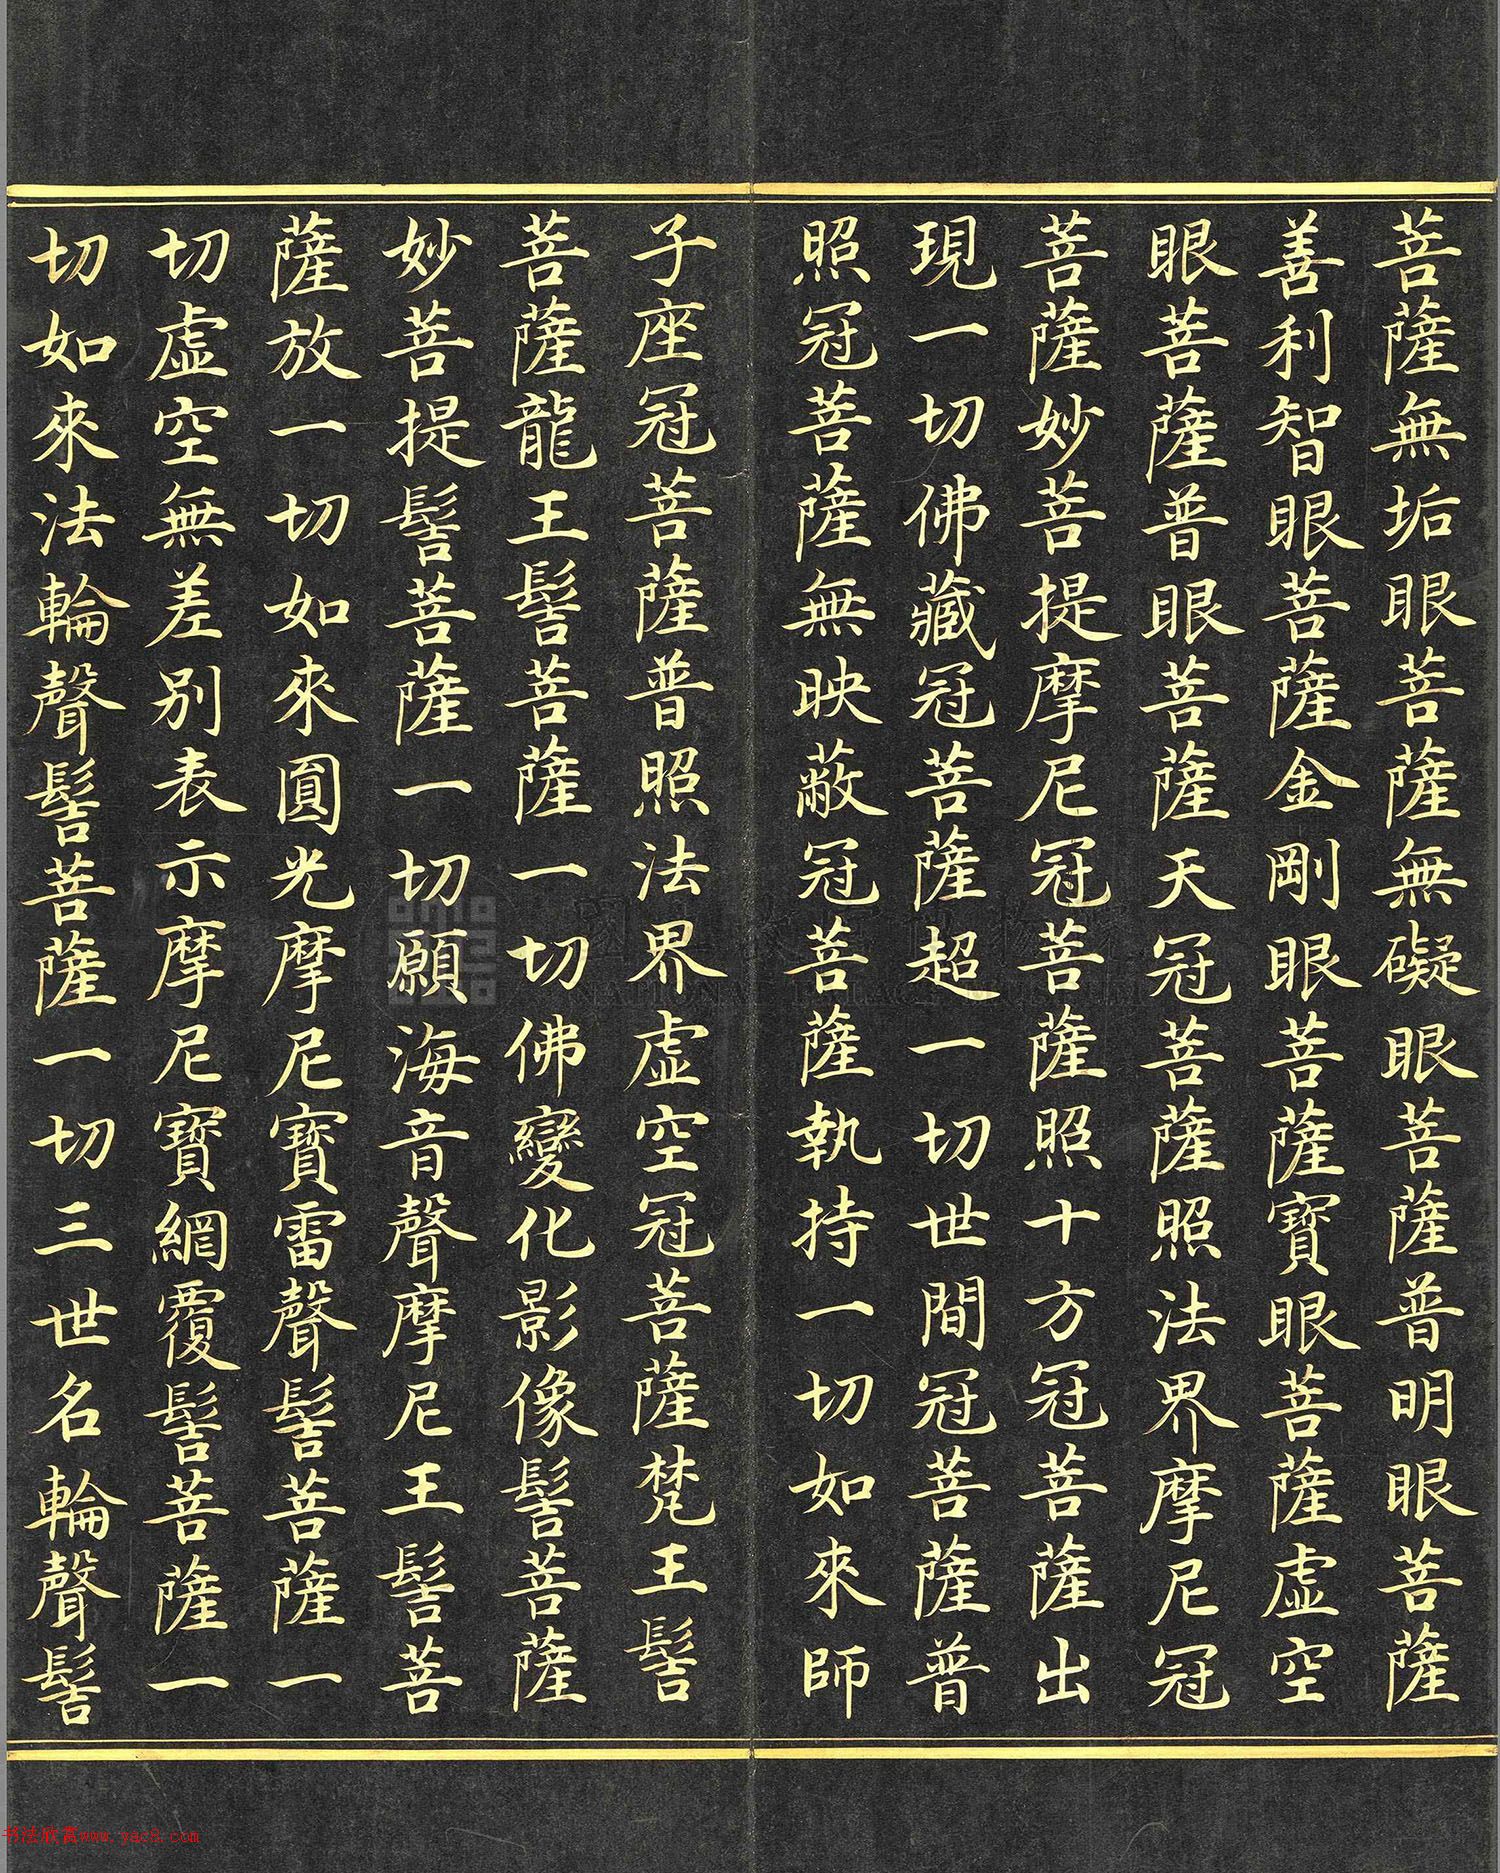 菩薩無垢眼菩薩無礙眼菩薩普明眼菩薩
善利智眼菩薩金剛眼菩薩寶眼菩薩虛空
眼菩薩普眼菩薩天冠菩薩照法界摩尼冠
菩薩妙菩提摩尼冠菩薩照十方冠菩薩出
現一切佛藏冠菩薩超一切世間冠菩薩普
照冠菩薩無映蔽冠菩薩執持一切如來師
子座冠菩薩普照法界虛空冠菩薩梵王髻
菩薩龍王髻菩薩一切佛變化影像髻菩薩
妙菩提髻菩薩一切願海音聲摩尼王髻菩
薩放一切如來圓光摩尼寶雷聲髻菩薩一
切虛空無差別表示摩尼寶網覆髻菩薩一
切如來法輪聲髻菩薩一切三世名輪聲髻
NATIONAL PALACE MUSEUM
书法欣赏www.yac8.com